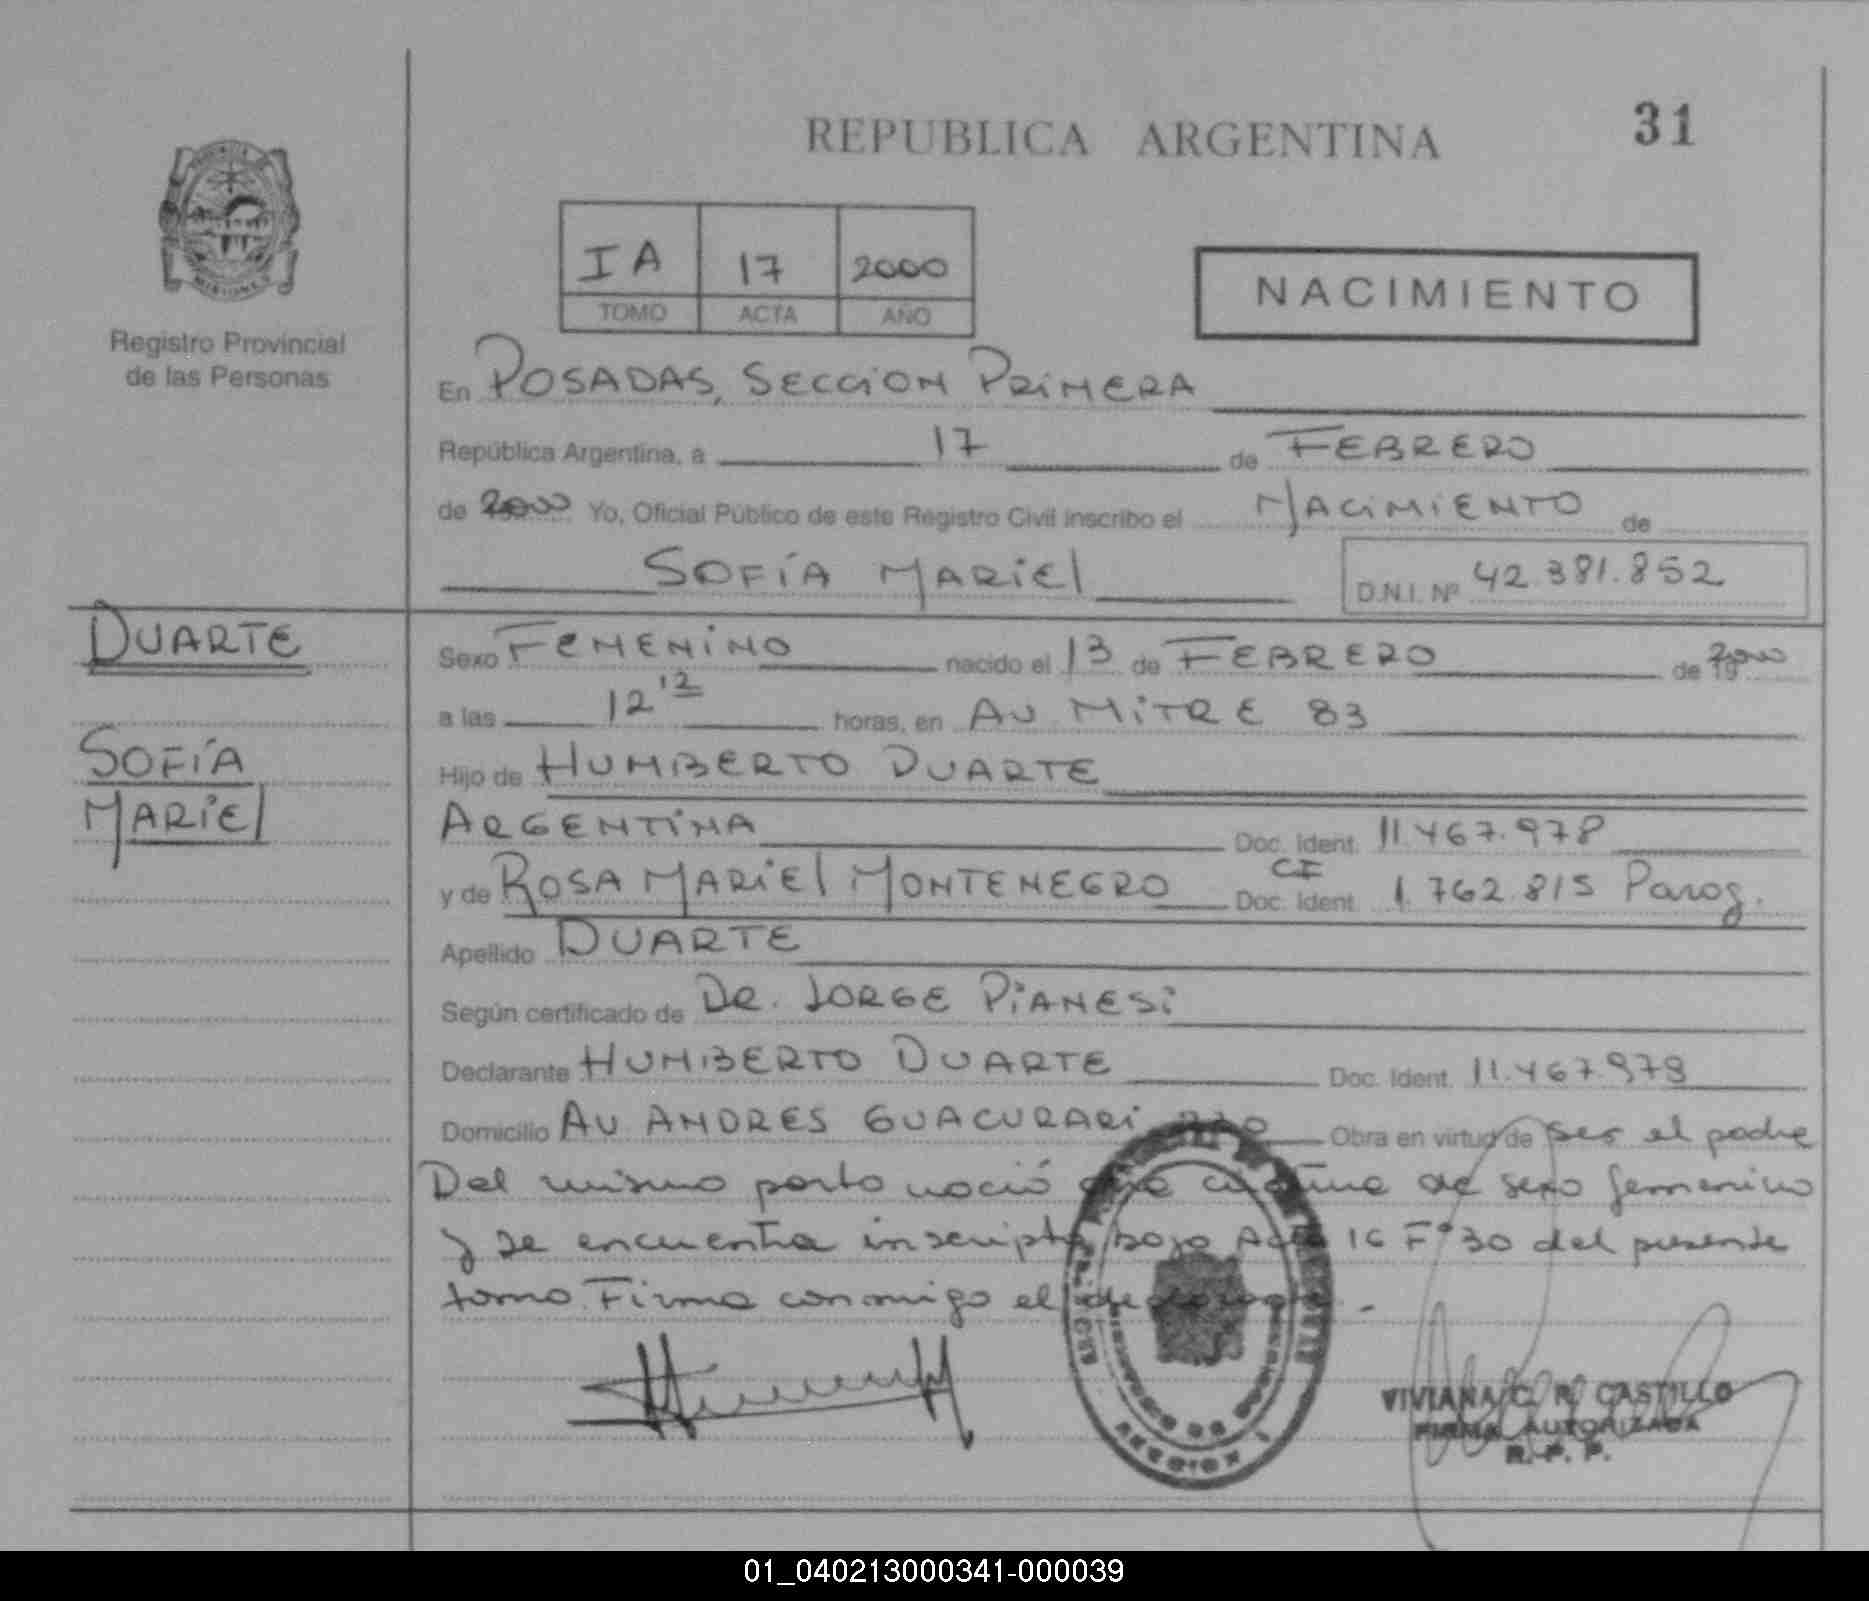 REPUBLICA ARGENTINA
31
IA 17 2000
TOMO ACTA AÑO
NACIMIENTO
MISIONES
Registro Provincial
de las Personas
En POSADAS, SECCION PRIMERA
República Argentina, a 17 de FEBRERO
de 2000 Yo, Oficial Público de este Registro Civil inscribo el NACIMIENTO de
SOFÍA MARIEL
D.N.I. Nº 42.381.852
DUARTE
SOFÍA
MARIEL
Sexo FEMENINO nacido el 13 de FEBRERO de 2000
a las 12 12 horas, en AV MITRE 83
Hijo de HUMBERTO DUARTE
ARGENTINA Doc. Ident. 11.467.978
y de ROSA MARIEL MONTENEGRO CI Doc. Ident. 1.762.815 Parag.
Apellido DUARTE
Según certificado de DR. JORGE PIANESI
Declarante HUMBERTO DUARTE Doc. Ident. 11.467.978
Domicilio AV ANDRES GUACURARI Obra en virtud de ser el padre
Del mismo parto nació otra criatura de sexo femenino
y se encuentra inscripta bajo Acta 16 Fº 30 del presente
tomo. Firma conmigo el declarante.-
VIVIANA C. R. CASTILLO
FIRMA AUTORIZADA
R. P. P.
01_040213000341-000039